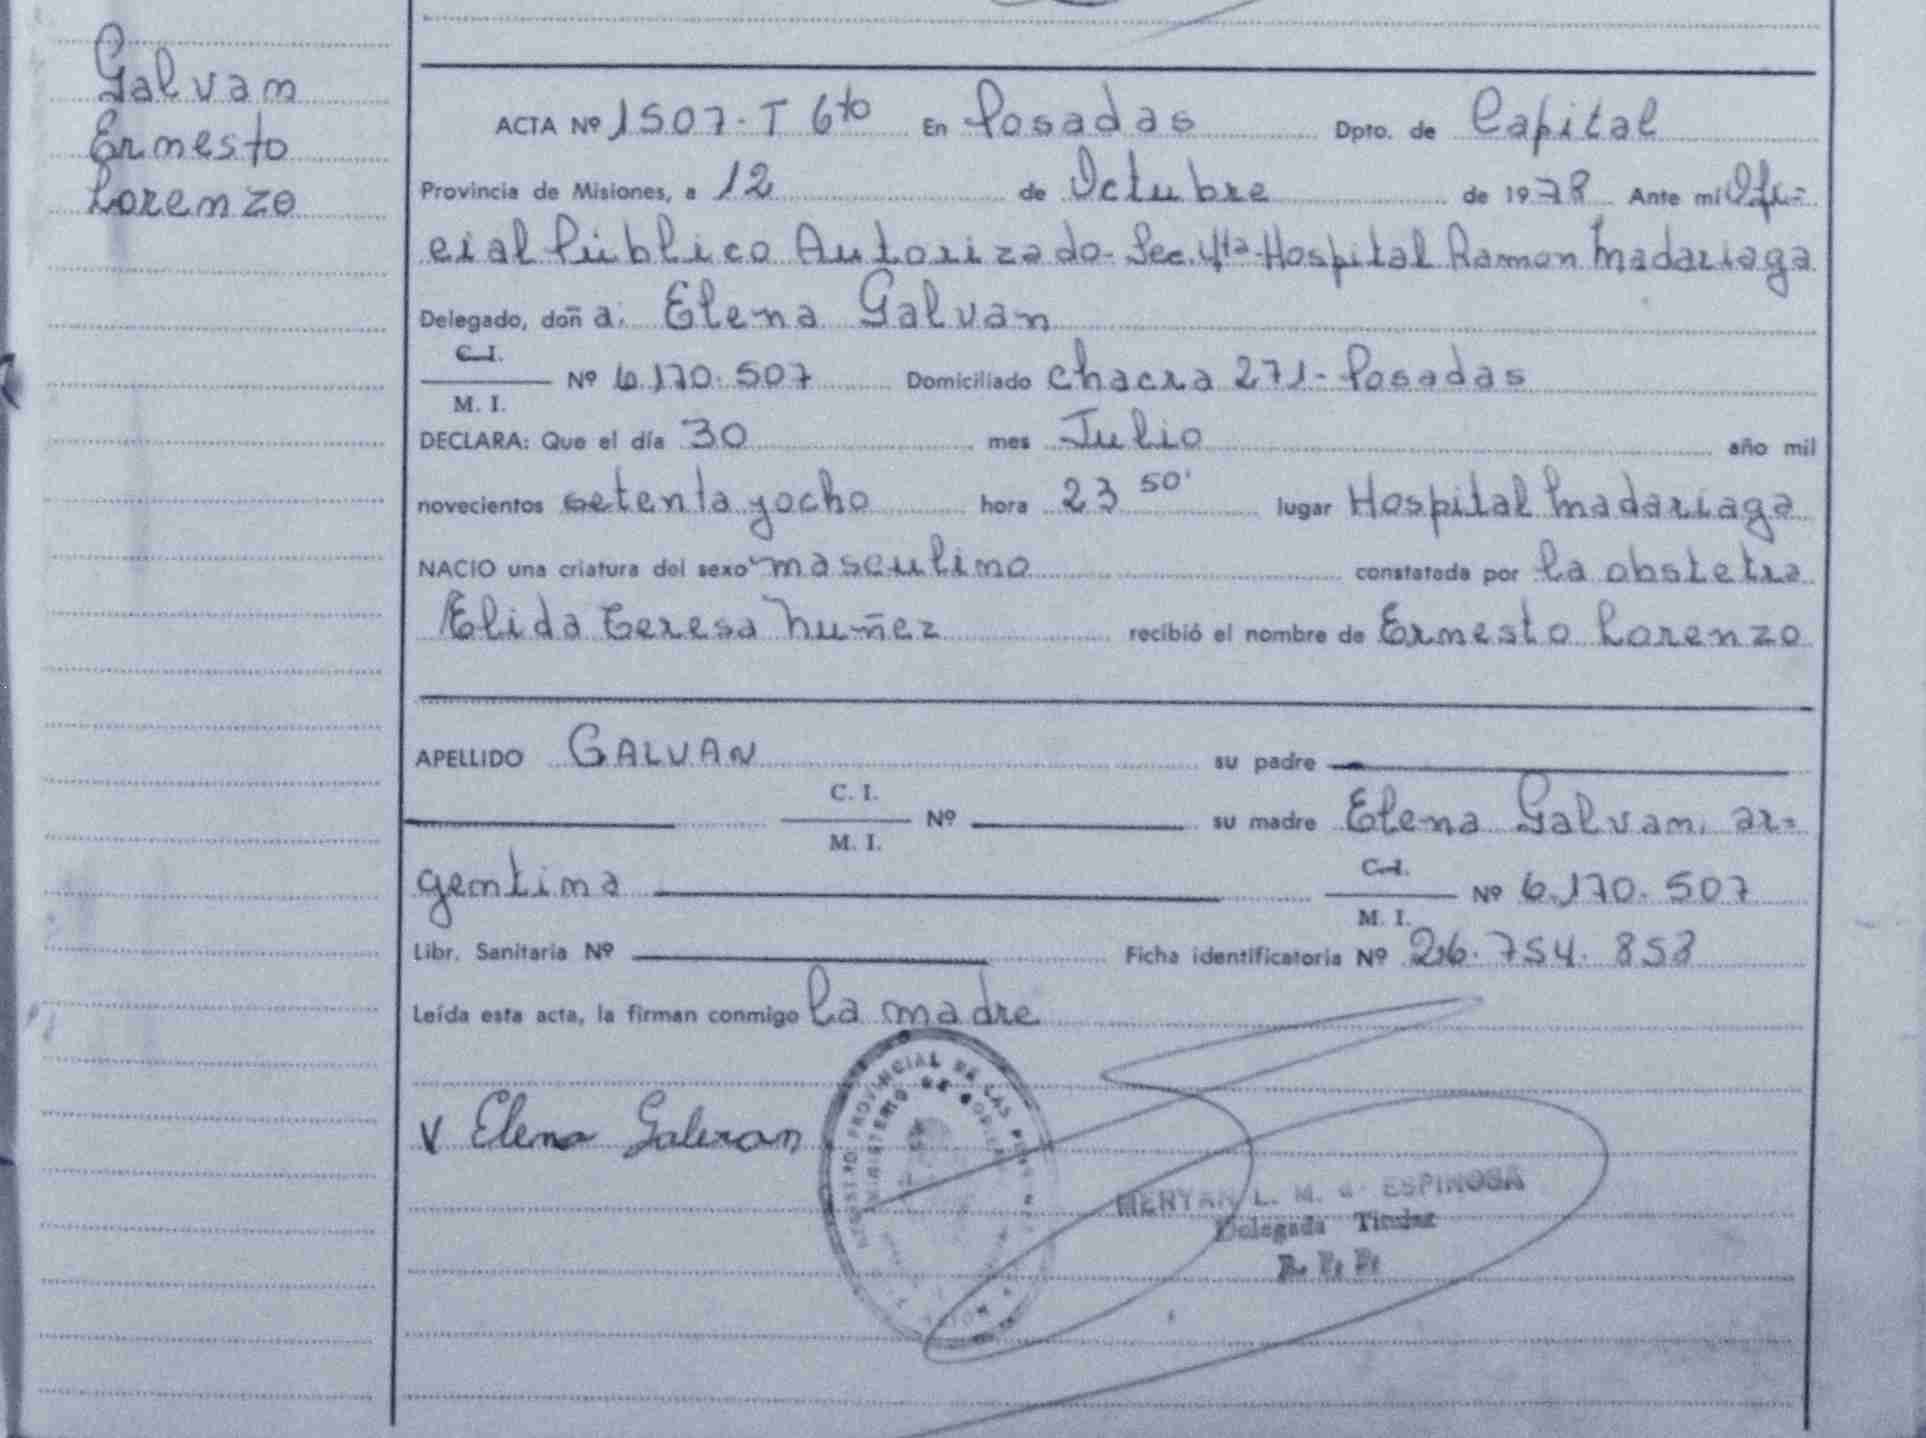 Galvan
Ernesto
Lorenzo
ACTA Nº 1507. T 6to En Posadas Dpto. de Capital
Provincia de Misiones, a 12 de Octubre de 1978 Ante mi Ofi=
cial Público Autorizado- Sec. 4ta- Hospital Ramon Madariaga
Delegado, doña: Elena Galvan
C.I.
Nº 6.170.507 Domiciliado Chacra 271- Posadas
M. I.
DECLARA: Que el día 30 mes Julio año mil
novecientos setenta y ocho hora 23 50' lugar Hospital Madariaga
NACIO una criatura del sexo masculino constatada por la obstetra
Elida Teresa Nuñez recibió el nombre de Ernesto Lorenzo
APELLIDO GALVAN su padre
C. I.
Nº su madre Elena Galvan, ar=
M. I.
gentina C.I. Nº 6.170.507
M. I.
Libr. Sanitaria Nº Ficha identificatoria Nº 26.754.853
Leída esta acta, la firman conmigo la madre
REGISTRO PROVINCIAL DE LAS
MINISTERIO DE GOBIERNO
v Elena Galvan
MERYAN L. M. de ESPINOSA
Delegada Titular
R. P. P.